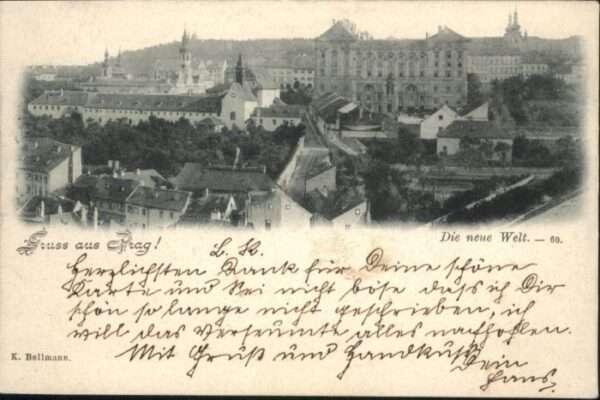 Gruss aus Prag!
Die neue Welt. — 60.
L. K.
Herzlichsten Dank für Deine schöne
Karte und sei nicht böse dass ich Dir
schön so lange nicht geschrieben, ich
will das versäumte alles nachhohlen.
Mit Gruß und Handkuß
Dein
Hans.
K. Bellmann.